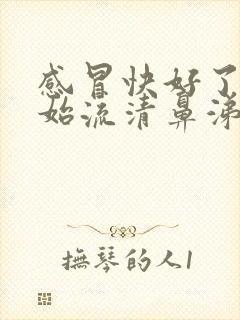 感冒快好了
始流清鼻涕
撫琴的人1